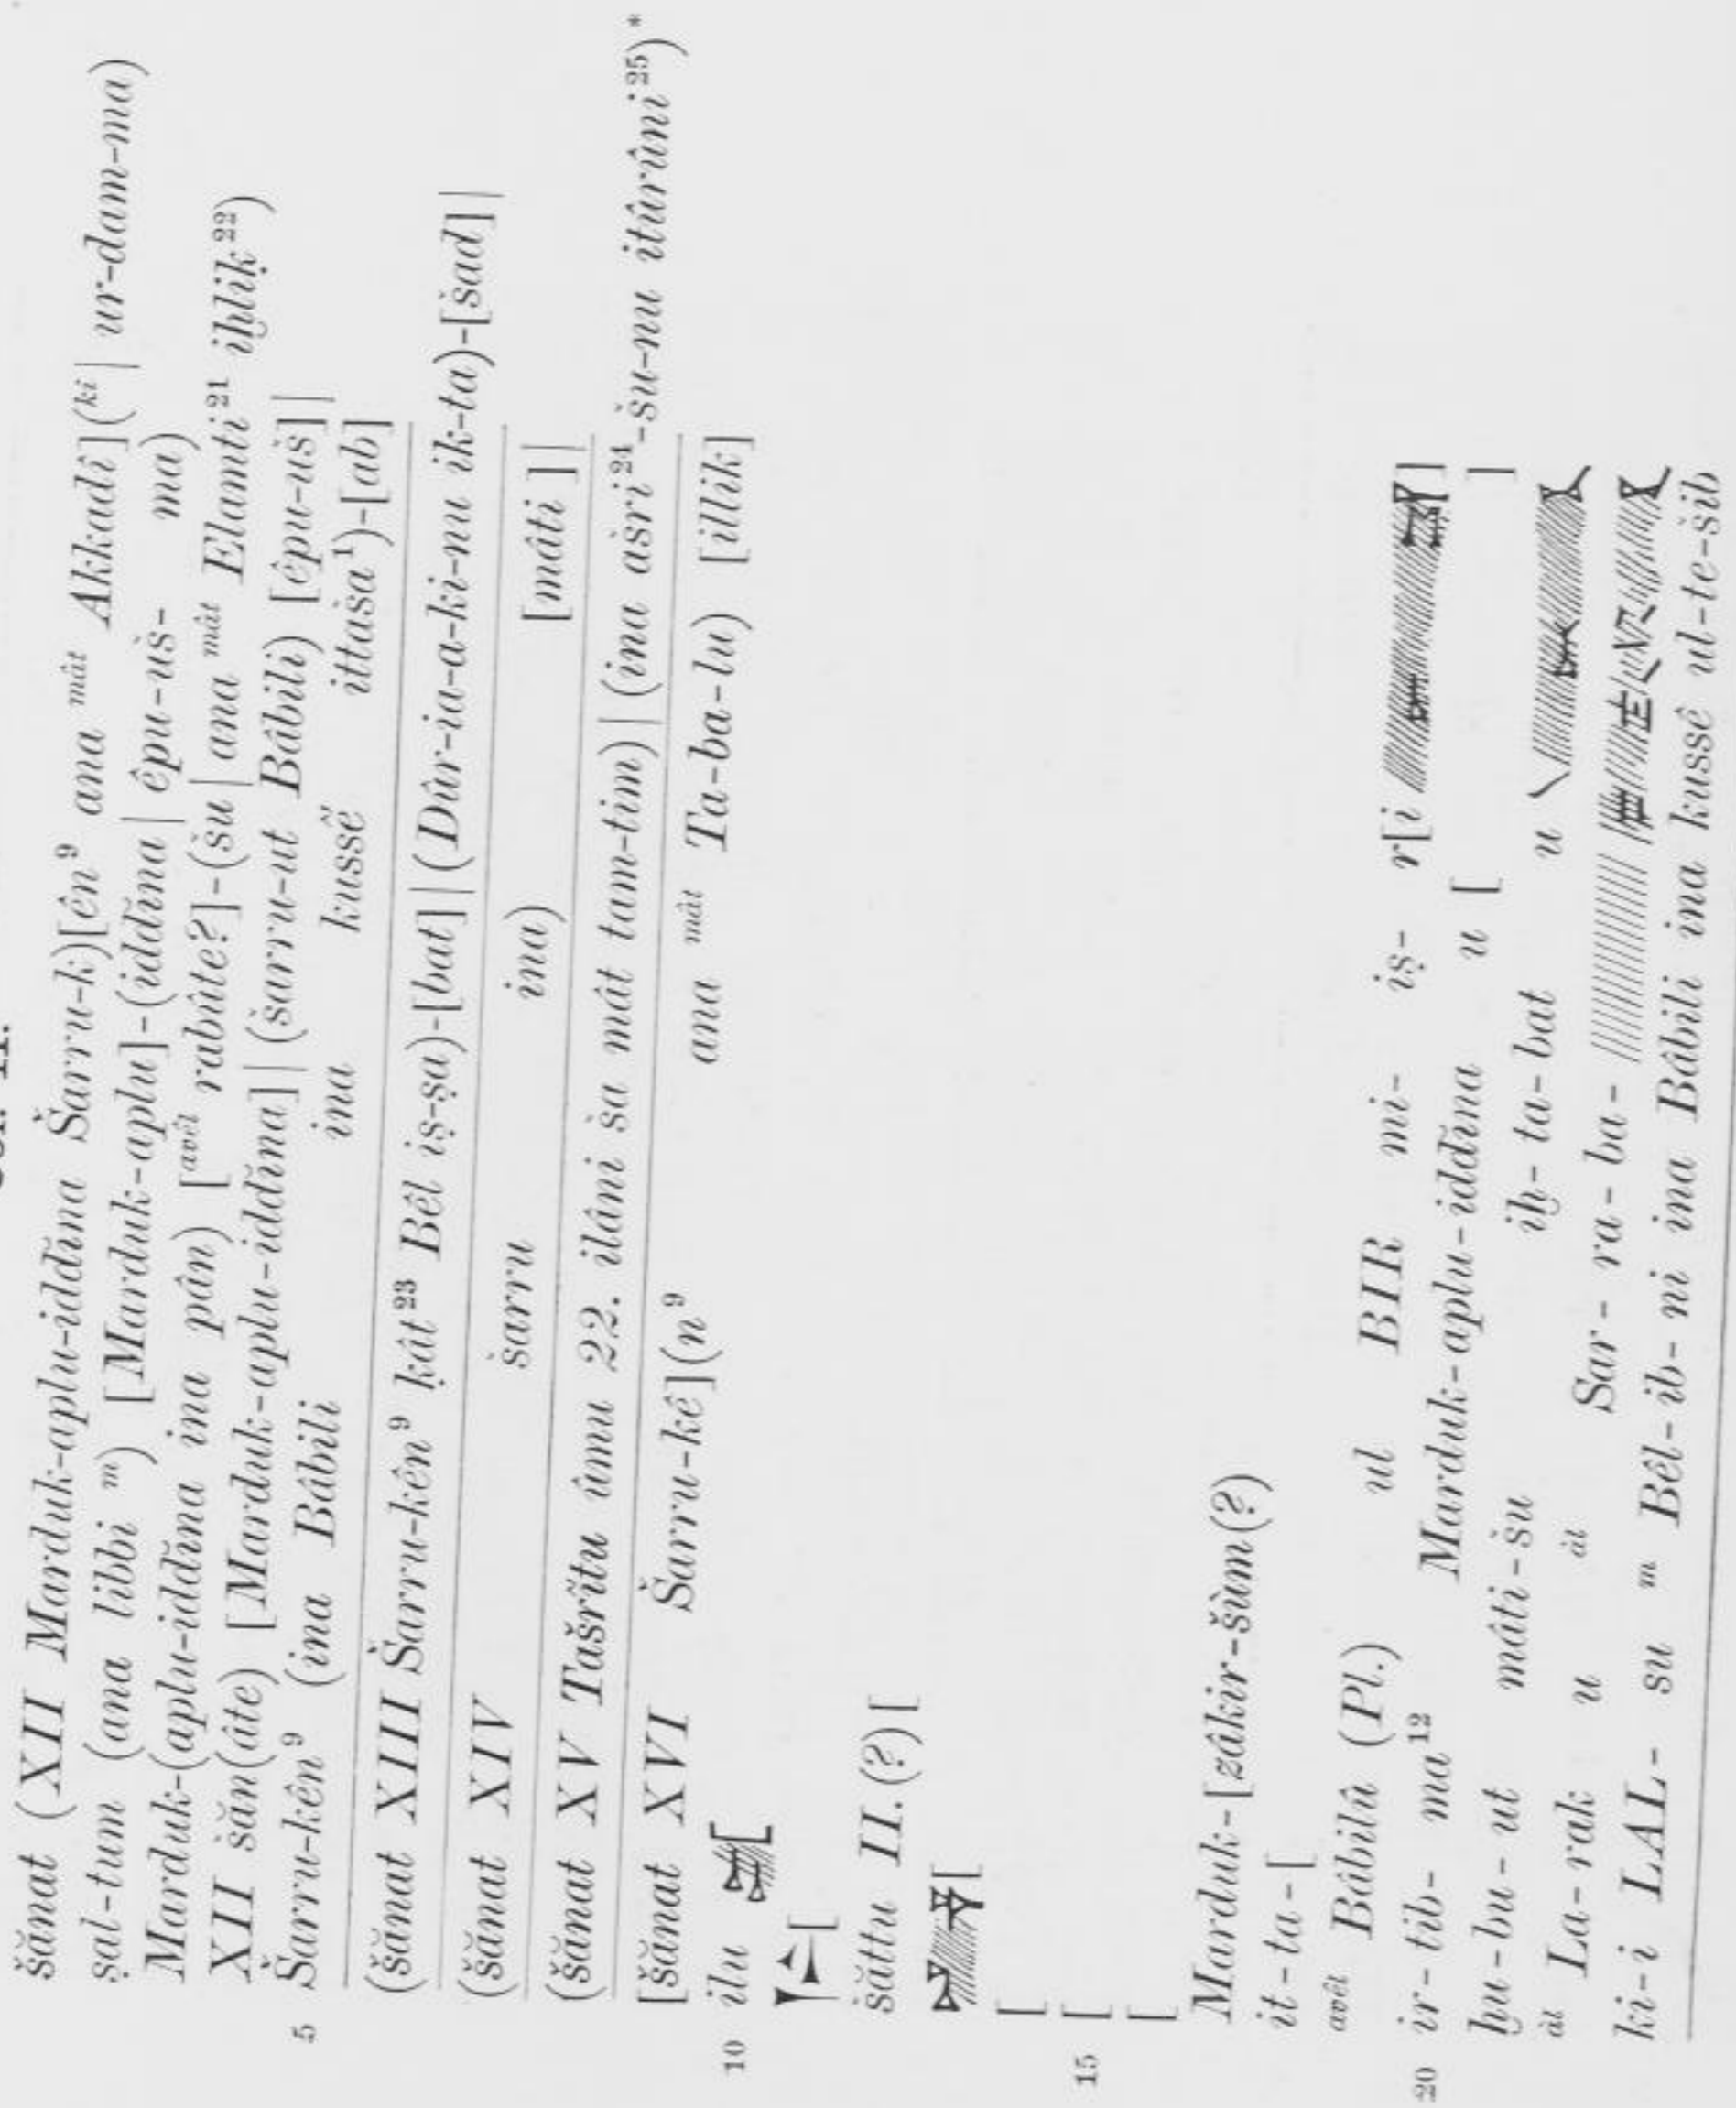 šănat (XII Marduk-aplu-iddĭna Šarru-k)[ên⁹ ana mât Akkadî](ki | ur-dam-ma)
ṣal-tum (ana libbi m) [Marduk-aplu]-(iddĭna | êpu-uš- ma)
Marduk-(aplu-iddĭna ina pân) [avêl rabûte?]-(šu | ana mât Elamti²¹ iḫliḳ²²)
XII šăn(âte) [Marduk-aplu-iddĭna] | (šarru-ut Bâbili) [êpu-uš] |
5 Šarru-kên⁹ (ina Bâbili ina kussê ittaša¹)-[ab]
(šănat XIII Šarru-kên⁹ ḳât²³ Bêl iṣ-ṣa)-[bat] | (Dûr-ia-a-ki-nu ik-ta)-[šad] |
(šănat XIV šarru ina) [mâti ] |
(šănat XV Tašrĭtu ûmu 22. ilâni ša mât tam-tim) | (ina ašri²⁴-šu-nu itûrûni²⁵)*
[šănat XVI Šarru-kê](n⁹ ana mât Ta-ba-lu) [illik]
10 ilu [
[
šăttu II. (?) [
[
[
15 [
[
Marduk-[zâkir-šùm(?)
it-ta-[
avêl Bâbilû (Pl.) ul BIR mi- iṣ- r[i ]
20 ir-tib- ma¹² Marduk-aplu-iddĭna u [ ]
ḫu-bu-ut mâti-šu iḫ-ta-bat u
âl La-rak u âl Sar-ra-ba-
ki-i LAL- su m Bêl-ib-ni ina Bâbili ina kussê ul-te-šib